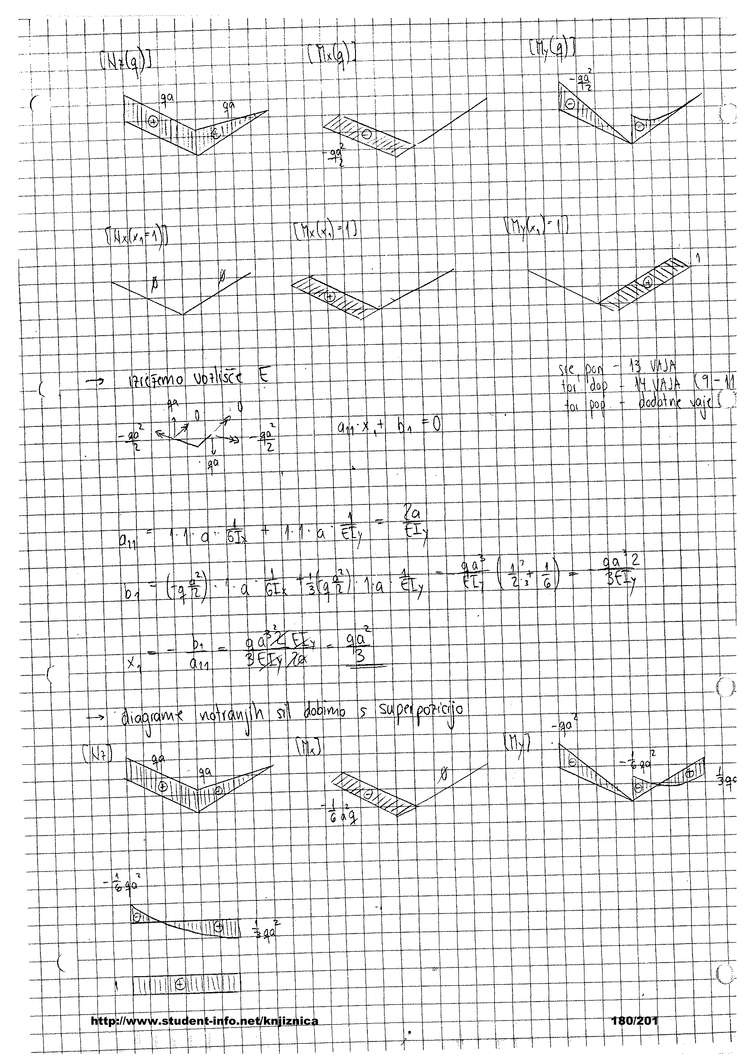 [Nz(q)] [Mx(q)] [My(q)]
qa qa -qa²/2
-qa²/2
[Nx(x₁=1)] [Mx(x₁)=1] [My(x₁)=1]
ø ø 1
→ izrežemo vozlišče E
sre pon - 13 VAJA
tor dop - 14 VAJA (9-11
tor pop - dodatne vaje (
qa 0 0
-qa²/2 -qa²/2
qa
a₁₁·x₁ + b₁ = 0
a₁₁ = 1·1·a·1/GIx + 1·1·a·1/EIy = 2a/EIy
b₁ = (-q a²/2)·1·a·1/GIx + 1/3(q a²/2)·1·a·1/EIy = qa³/EIy (1/2 + 1/6) = qa³2/3EIy
x₁ = -b₁/a₁₁ = qa³2EIy/3EIy2a = qa²/3
→ diagrame notranjih sil dobimo s superpozicijo
[Nz] [Mx] [My]
qa qa ø -qa² -1/6 qa²
-1/6 a²q 1/3 qa
-1/6 qa²
1/3 qa²
1
http://www.student-info.net/knjiznica 180/201